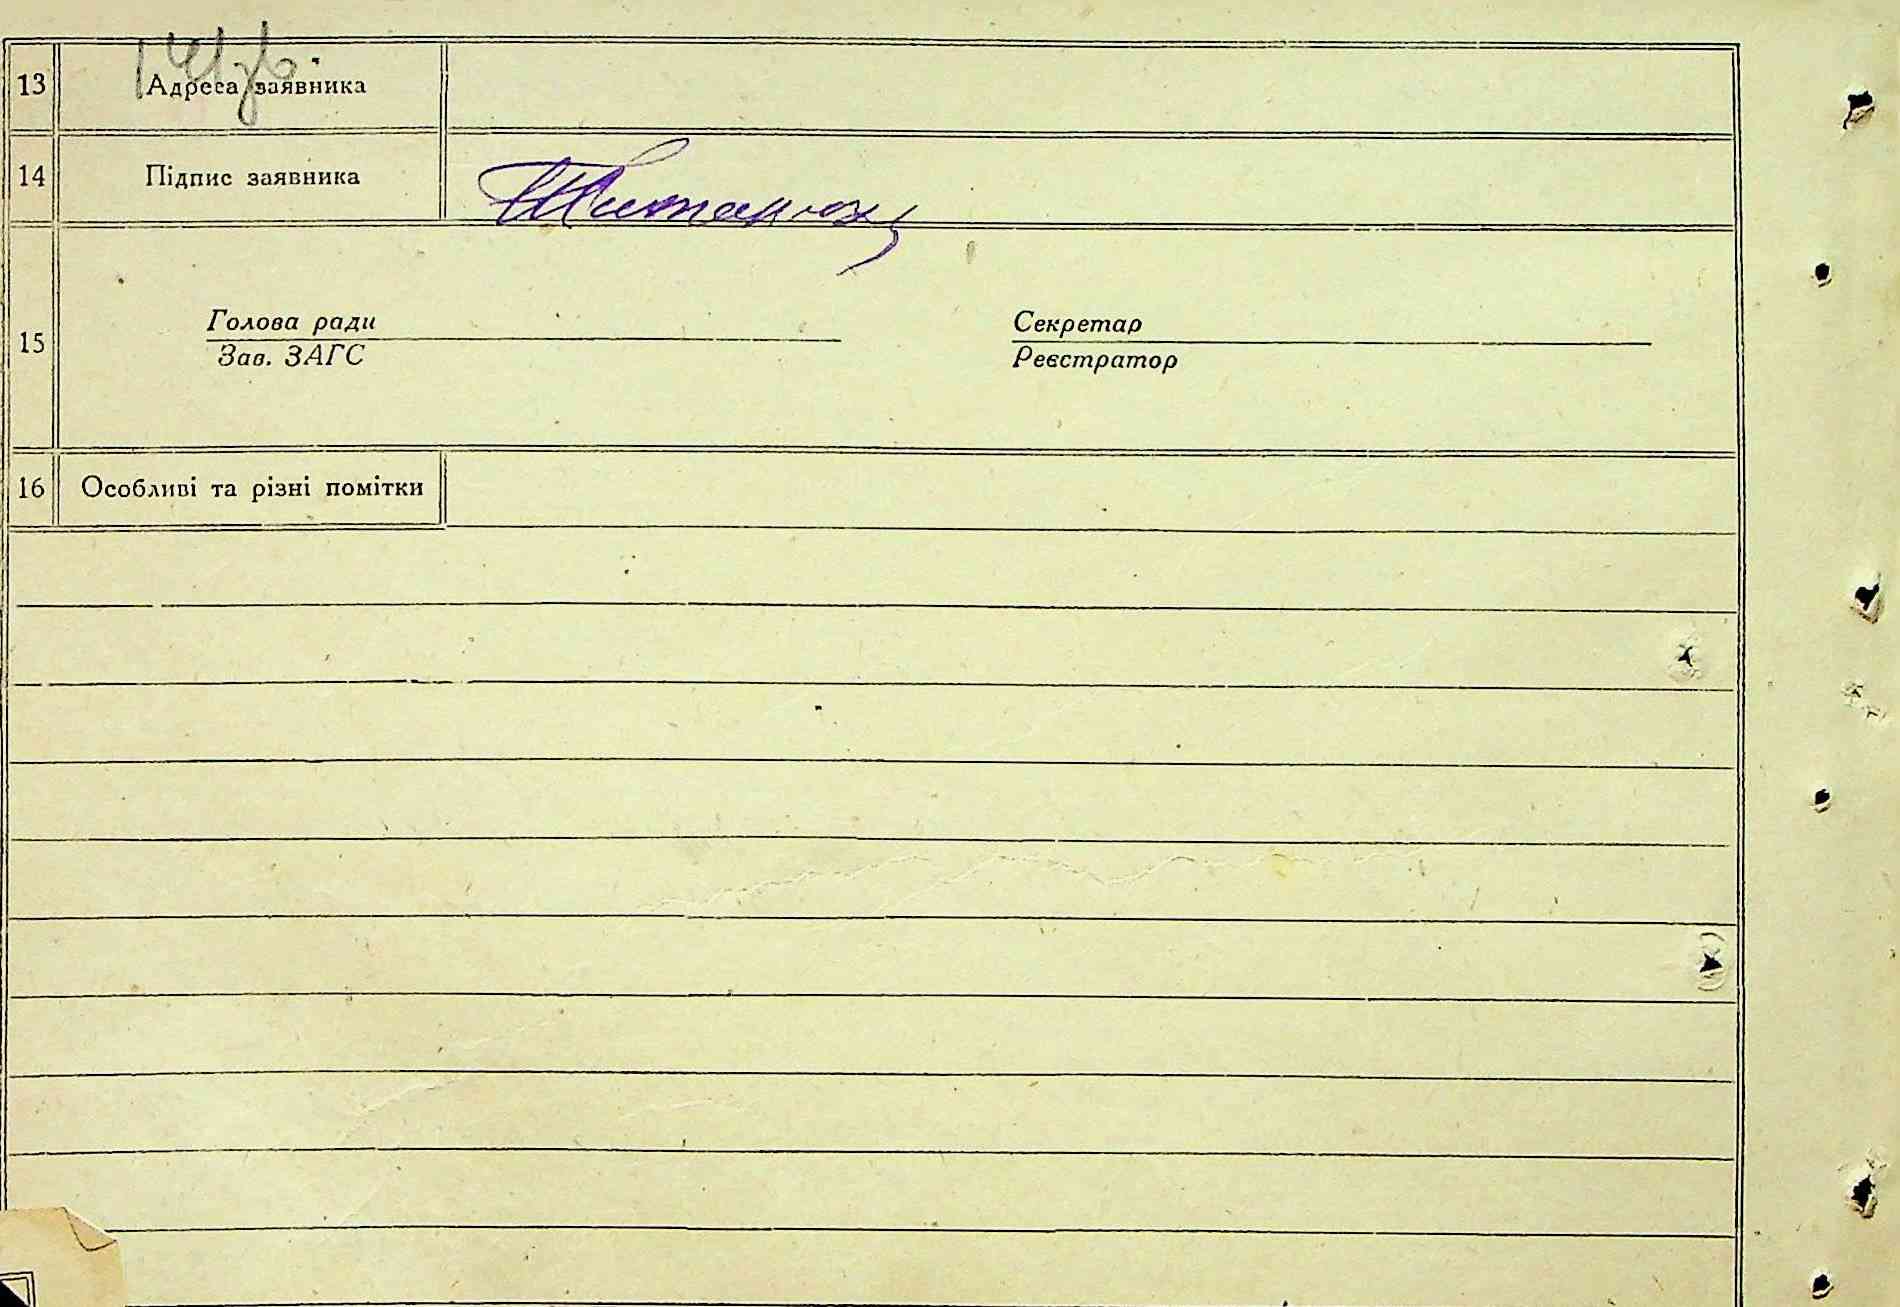 141 зв.
13 Адреса заявника
14 Підпис заявника
15 Голова ради Секретар
Зав. ЗАГС Реєстратор
16 Особливі та різні помітки